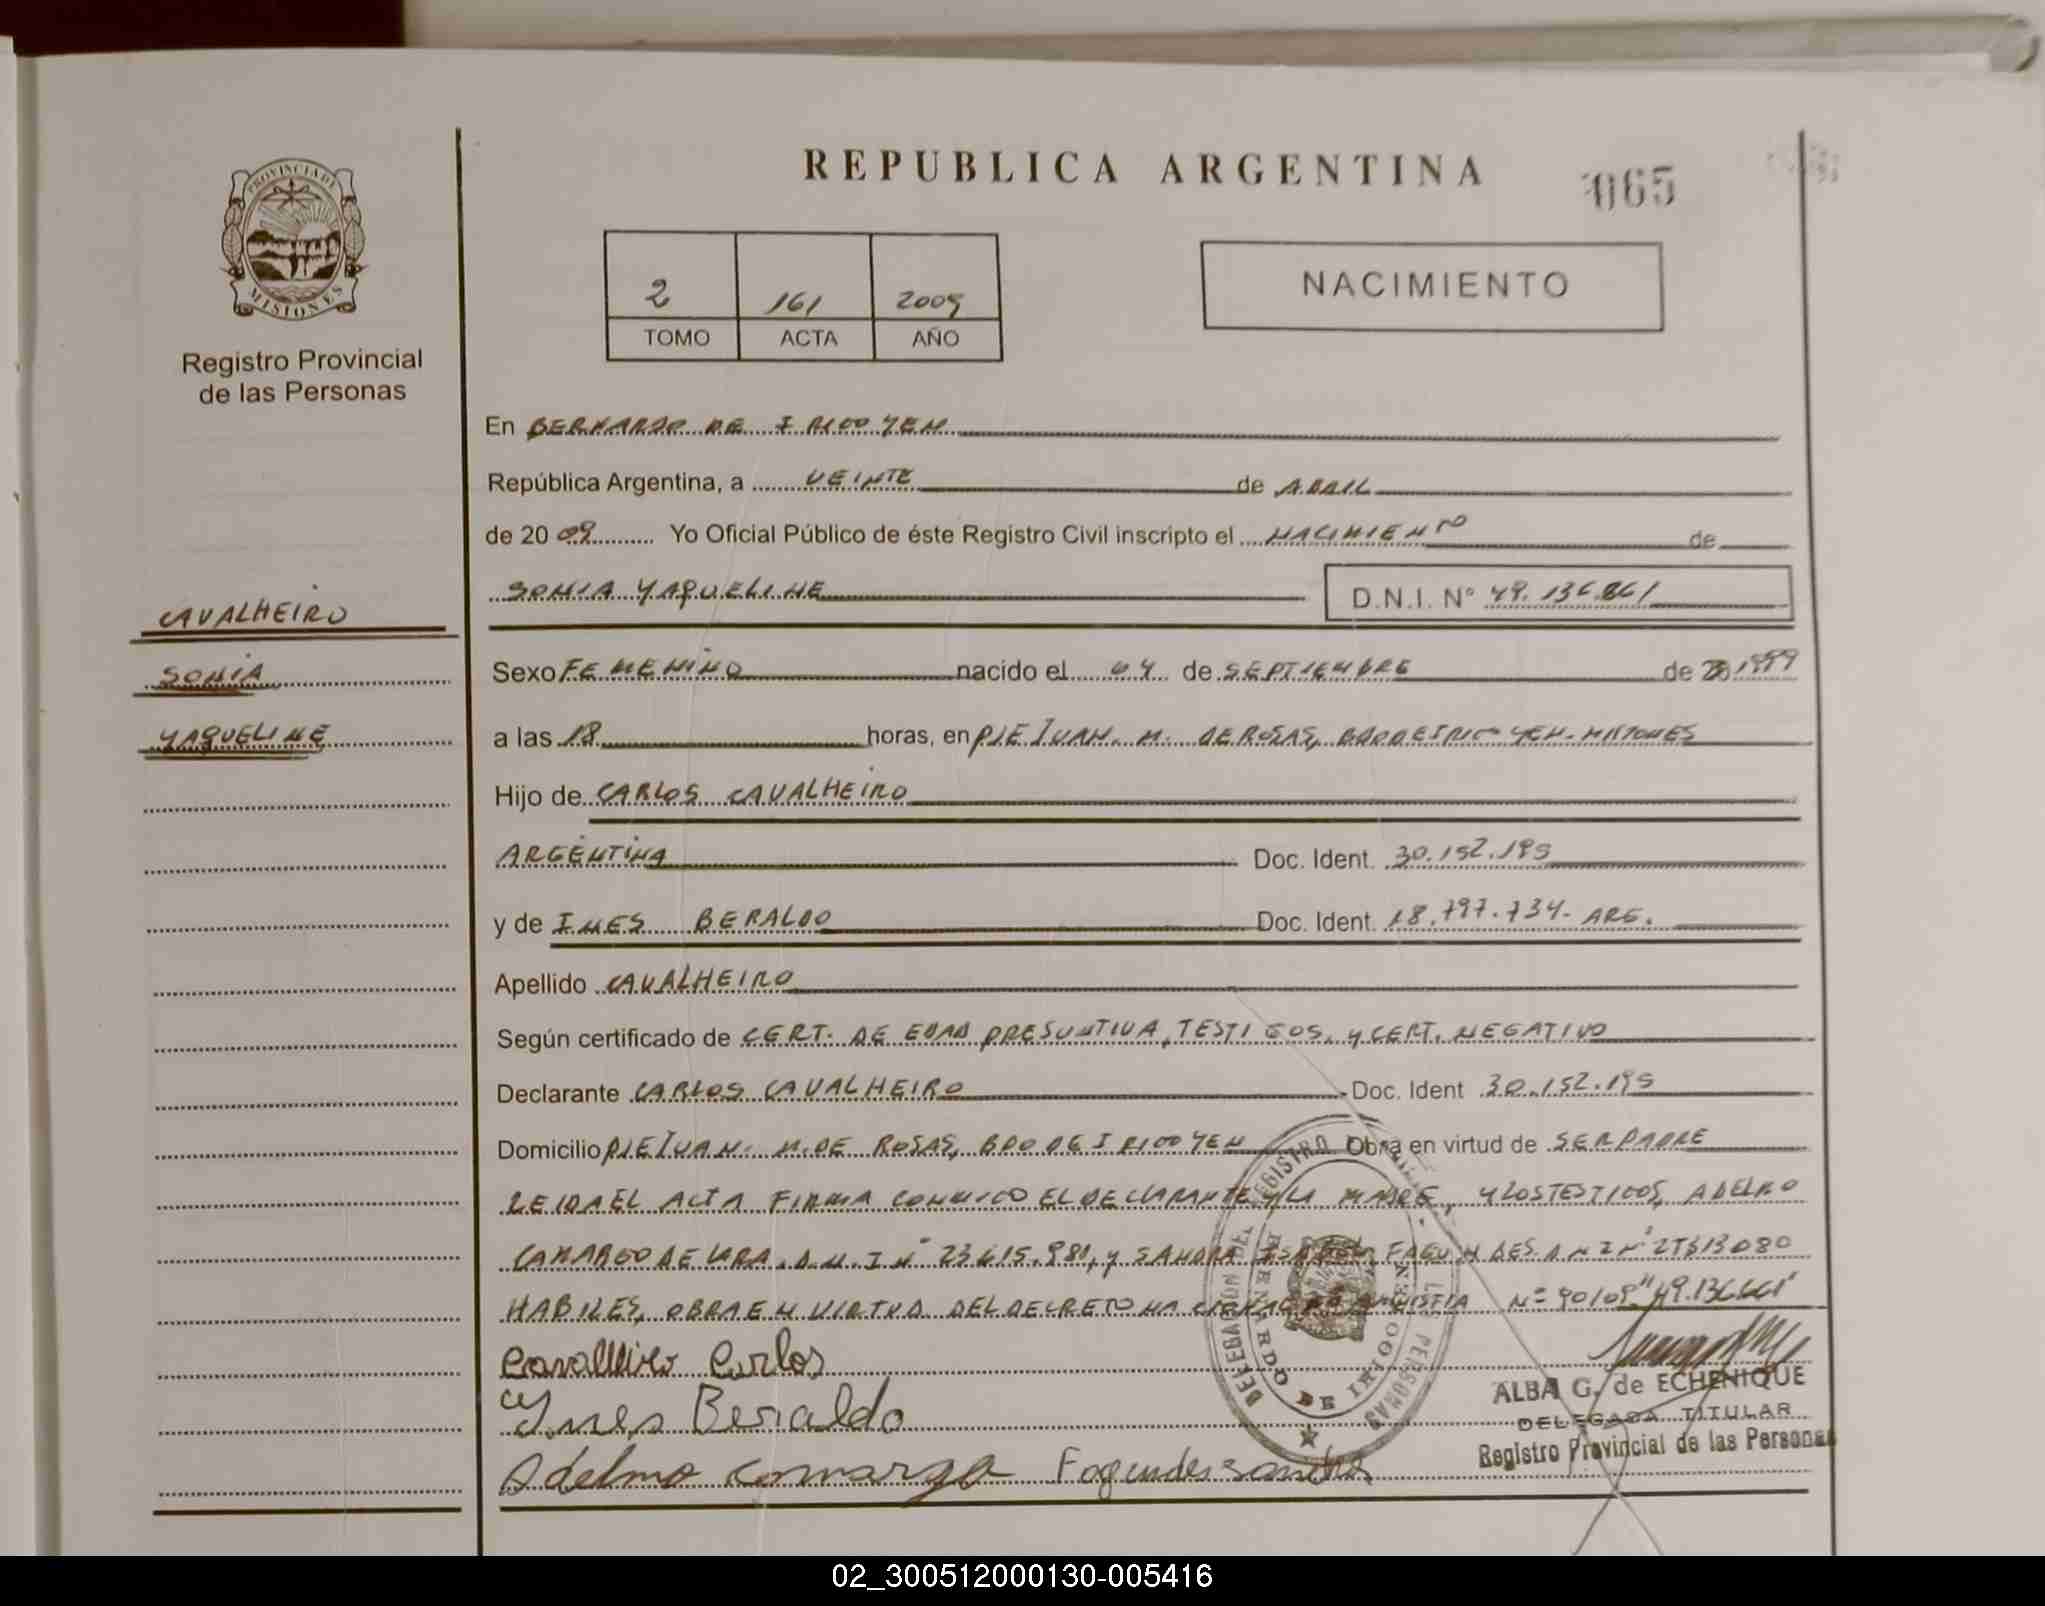 REPUBLICA ARGENTINA
065
PROVINCIA DE
MISIONES
Registro Provincial
de las Personas
2 161 2009
TOMO ACTA AÑO
NACIMIENTO
En BERNARDO DE IRIGOYEN
República Argentina, a VEINTE de ABRIL
de 2009 Yo Oficial Público de éste Registro Civil inscripto el NACIMIENTO de
SONIA YAQUELINE D.N.I. N° 49.136.661
CAVALHEIRO
SONIA
YAQUELINE
Sexo FEMENINO nacido el 04 de SEPTIEMBRE de 20 1999
a las 18 horas, en PJE JUAN. M. DE ROSAS, BDO DE IRIGOYEN-MISIONES
Hijo de CARLOS CAVALHEIRO
ARGENTINA Doc. Ident. 30.152.195
y de INES BERALDO Doc. Ident. 18.797.734- ARG.
Apellido CAVALHEIRO
Según certificado de CERT. DE EDAD PRESUNTIVA, TESTIGOS, y CERT. NEGATIVO
Declarante CARLOS CAVALHEIRO Doc. Ident 30.152.195
Domicilio PJE JUAN. M. DE ROSAS, BDO DE IRIGOYEN Obra en virtud de SER PADRE
LEIDA EL ACTA FIRMA CONMIGO EL DECLARANTE y LA MADRE, y LOS TESTIGOS, ADELMO
CAMARGO DE LARA. D.N.I N° 23.615.981, y SANDRA ISABEL FAGUNDES D N I N° 27513080
HABILES, OBRA EN VIRTUD DEL DECRETO NACIONAL DE AMNISTIA N° 90/09 "49.136.661"
Cavalheiro Carlos
Ines Beraldo
Adelmo Camargo Fagundes Sandra
DELEGACION DEL REGISTRO DE LAS PERSONAS
BERNARDO DE IRIGOYEN
ALBA G. de ECHENIQUE
DELEGADA TITULAR
Registro Provincial de las Personas
02_300512000130-005416